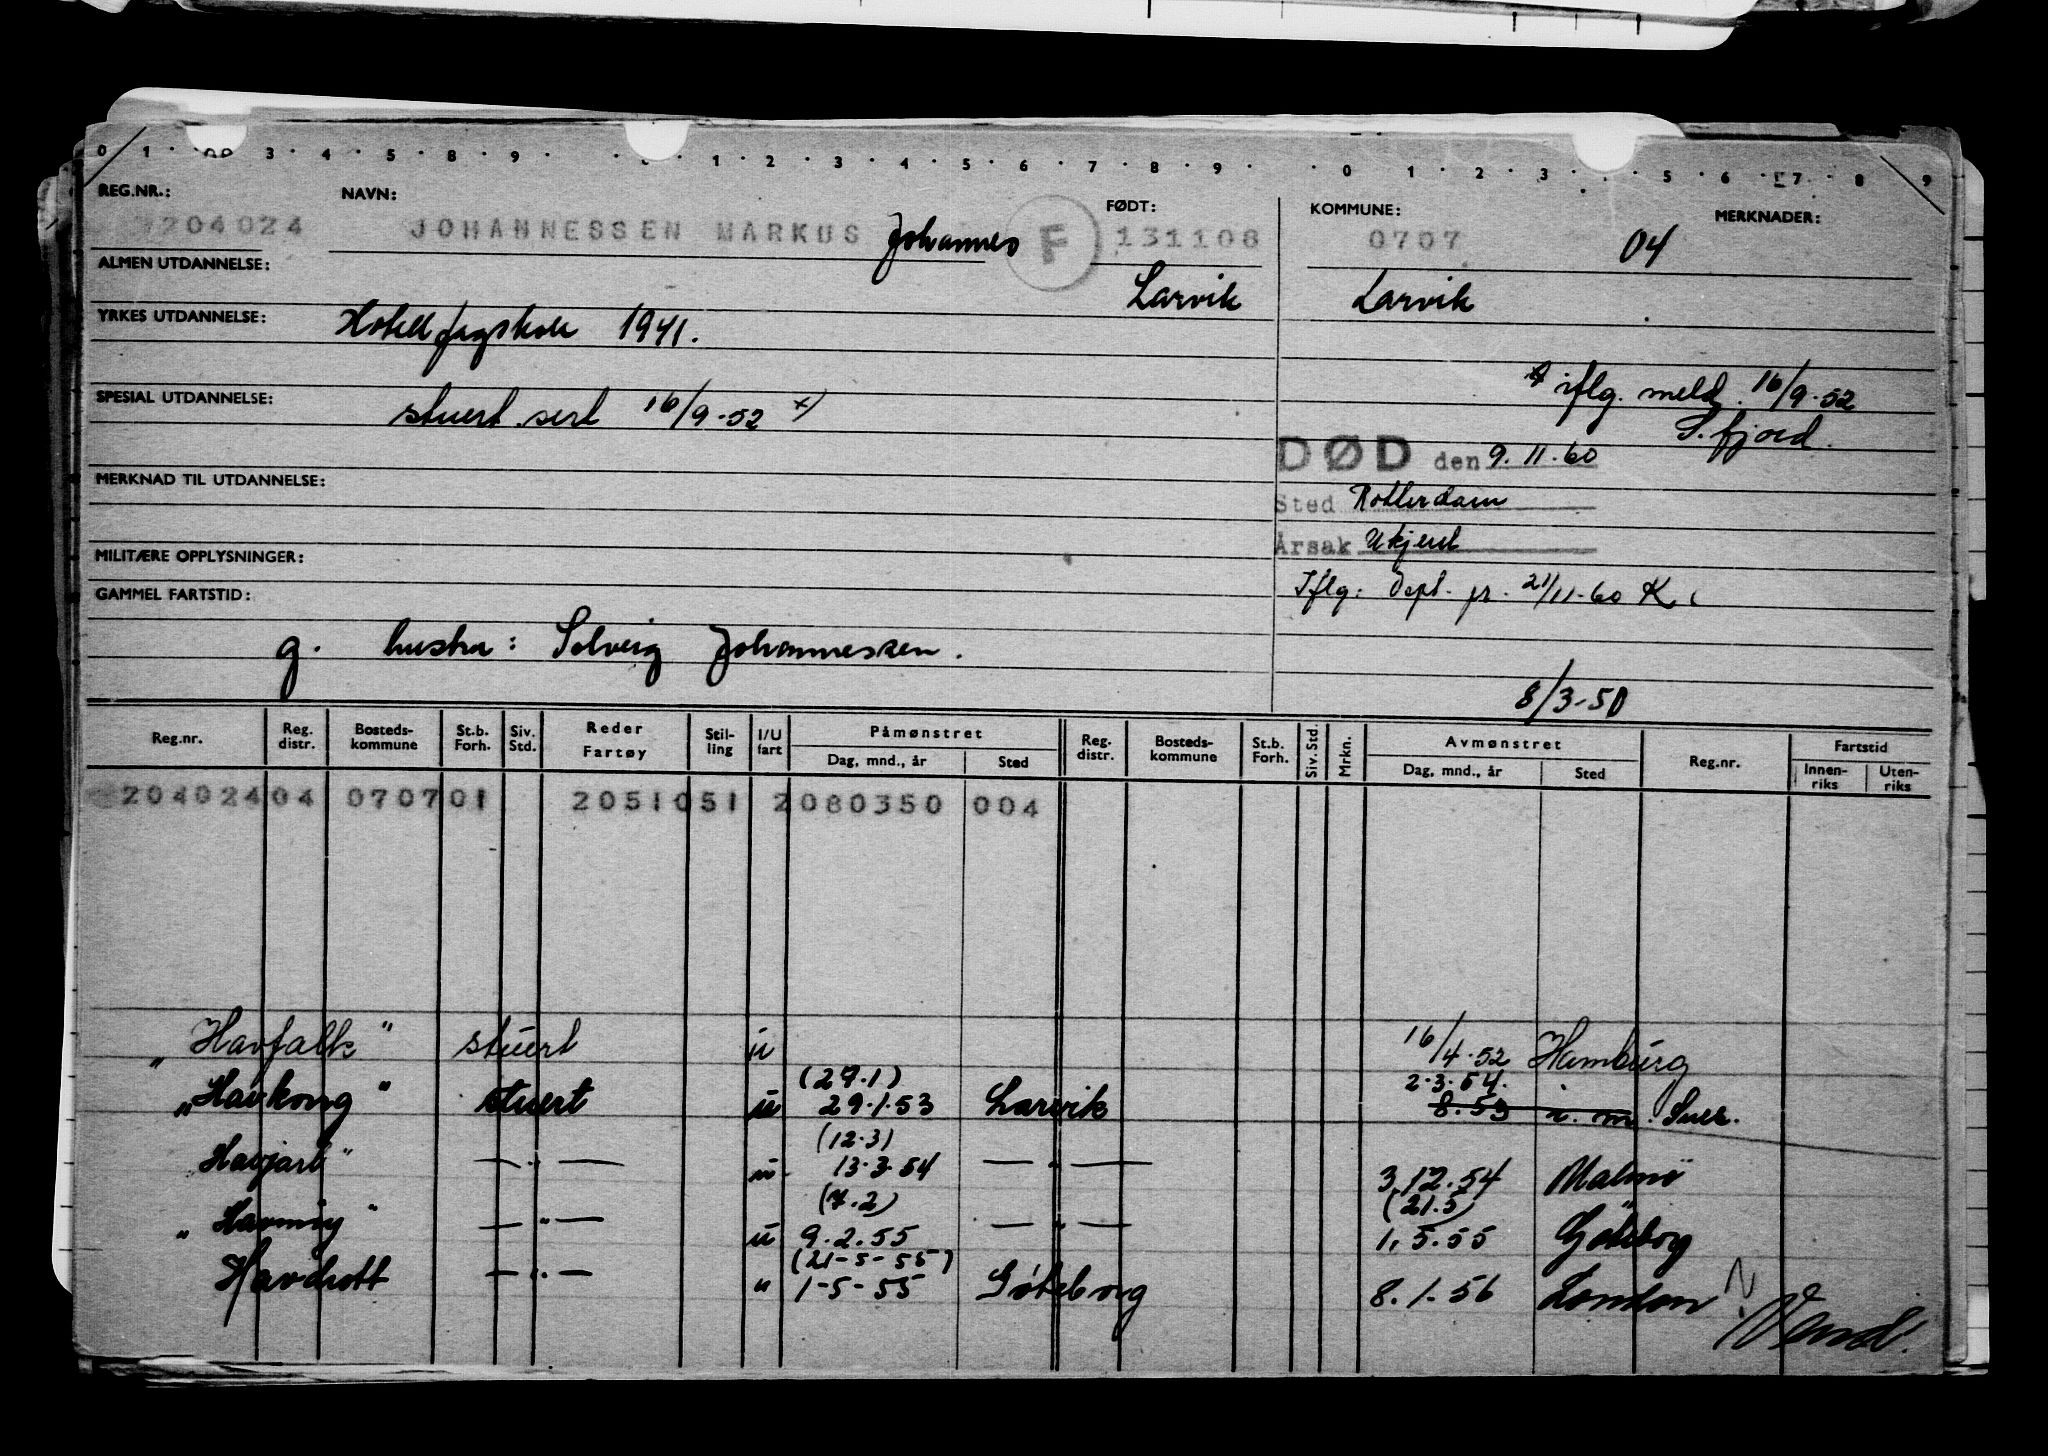 0 1 · · 3 · 4 · 5 · 8 · 9 · · · 1 · 2 · 3 · 4 · 5 · 6 · 7 · 8 · 9 · · 0 · 1 · 2 · 3 · · · 5 · 6 · 7 · 8 · 9
REG.NR.: NAVN: FØDT: KOMMUNE: MERKNADER:
204024 JOHANNESSEN MARKUS Johannes F 131108 0707 04
ALMEN UTDANNELSE: Larvik Larvik
YRKES UTDANNELSE: Hotell fagskole 1941.
iflg. meld. 16/9-52
SPESIAL UTDANNELSE: stuert sert 16/9-52 x)
S.fjord.
DØD den 9.11.60
MERKNAD TIL UTDANNELSE:
Sted Rotterdam
Årsak Ukjent
MILITÆRE OPPLYSNINGER:
GAMMEL FARTSTID: Iflg: Dept. pr. 21/11-60 K
g. hustru: Solveig Johannessen.
8/3-50
Reg.nr. Reg. distr. Bosteds- kommune St.b. Forh. Siv. Std. Reder Fartøy Stil- ling I/U fart Påmønstret Reg. distr. Bosteds- kommune St.b. Forh. Siv. Std. Mrkn. Avmønstret Reg.nr. Fartstid
Dag, mnd., år Sted Dag, mnd., år Sted Innen- riks Uten- riks
204024 04 0707 01 2051051 2080350 004
"Havfalk" stuert u 16/4-52 Hamburg
(27.1) 2.3.54.
"Havkong" stuert u 29.1.53 Larvik 8.53 i.m. Suez.
(12.3)
Havjarl" — " — u 13.3.54 — " — 3.12.54 Malmö
(7.2) (21.5)
"Havmøy" — " — u 9.2.55 — " — 1.5.55 Göteborg
(21-5-55)
Havdrott — " — " 1-5-55 Göteborg 8.1.56 London
Vend!